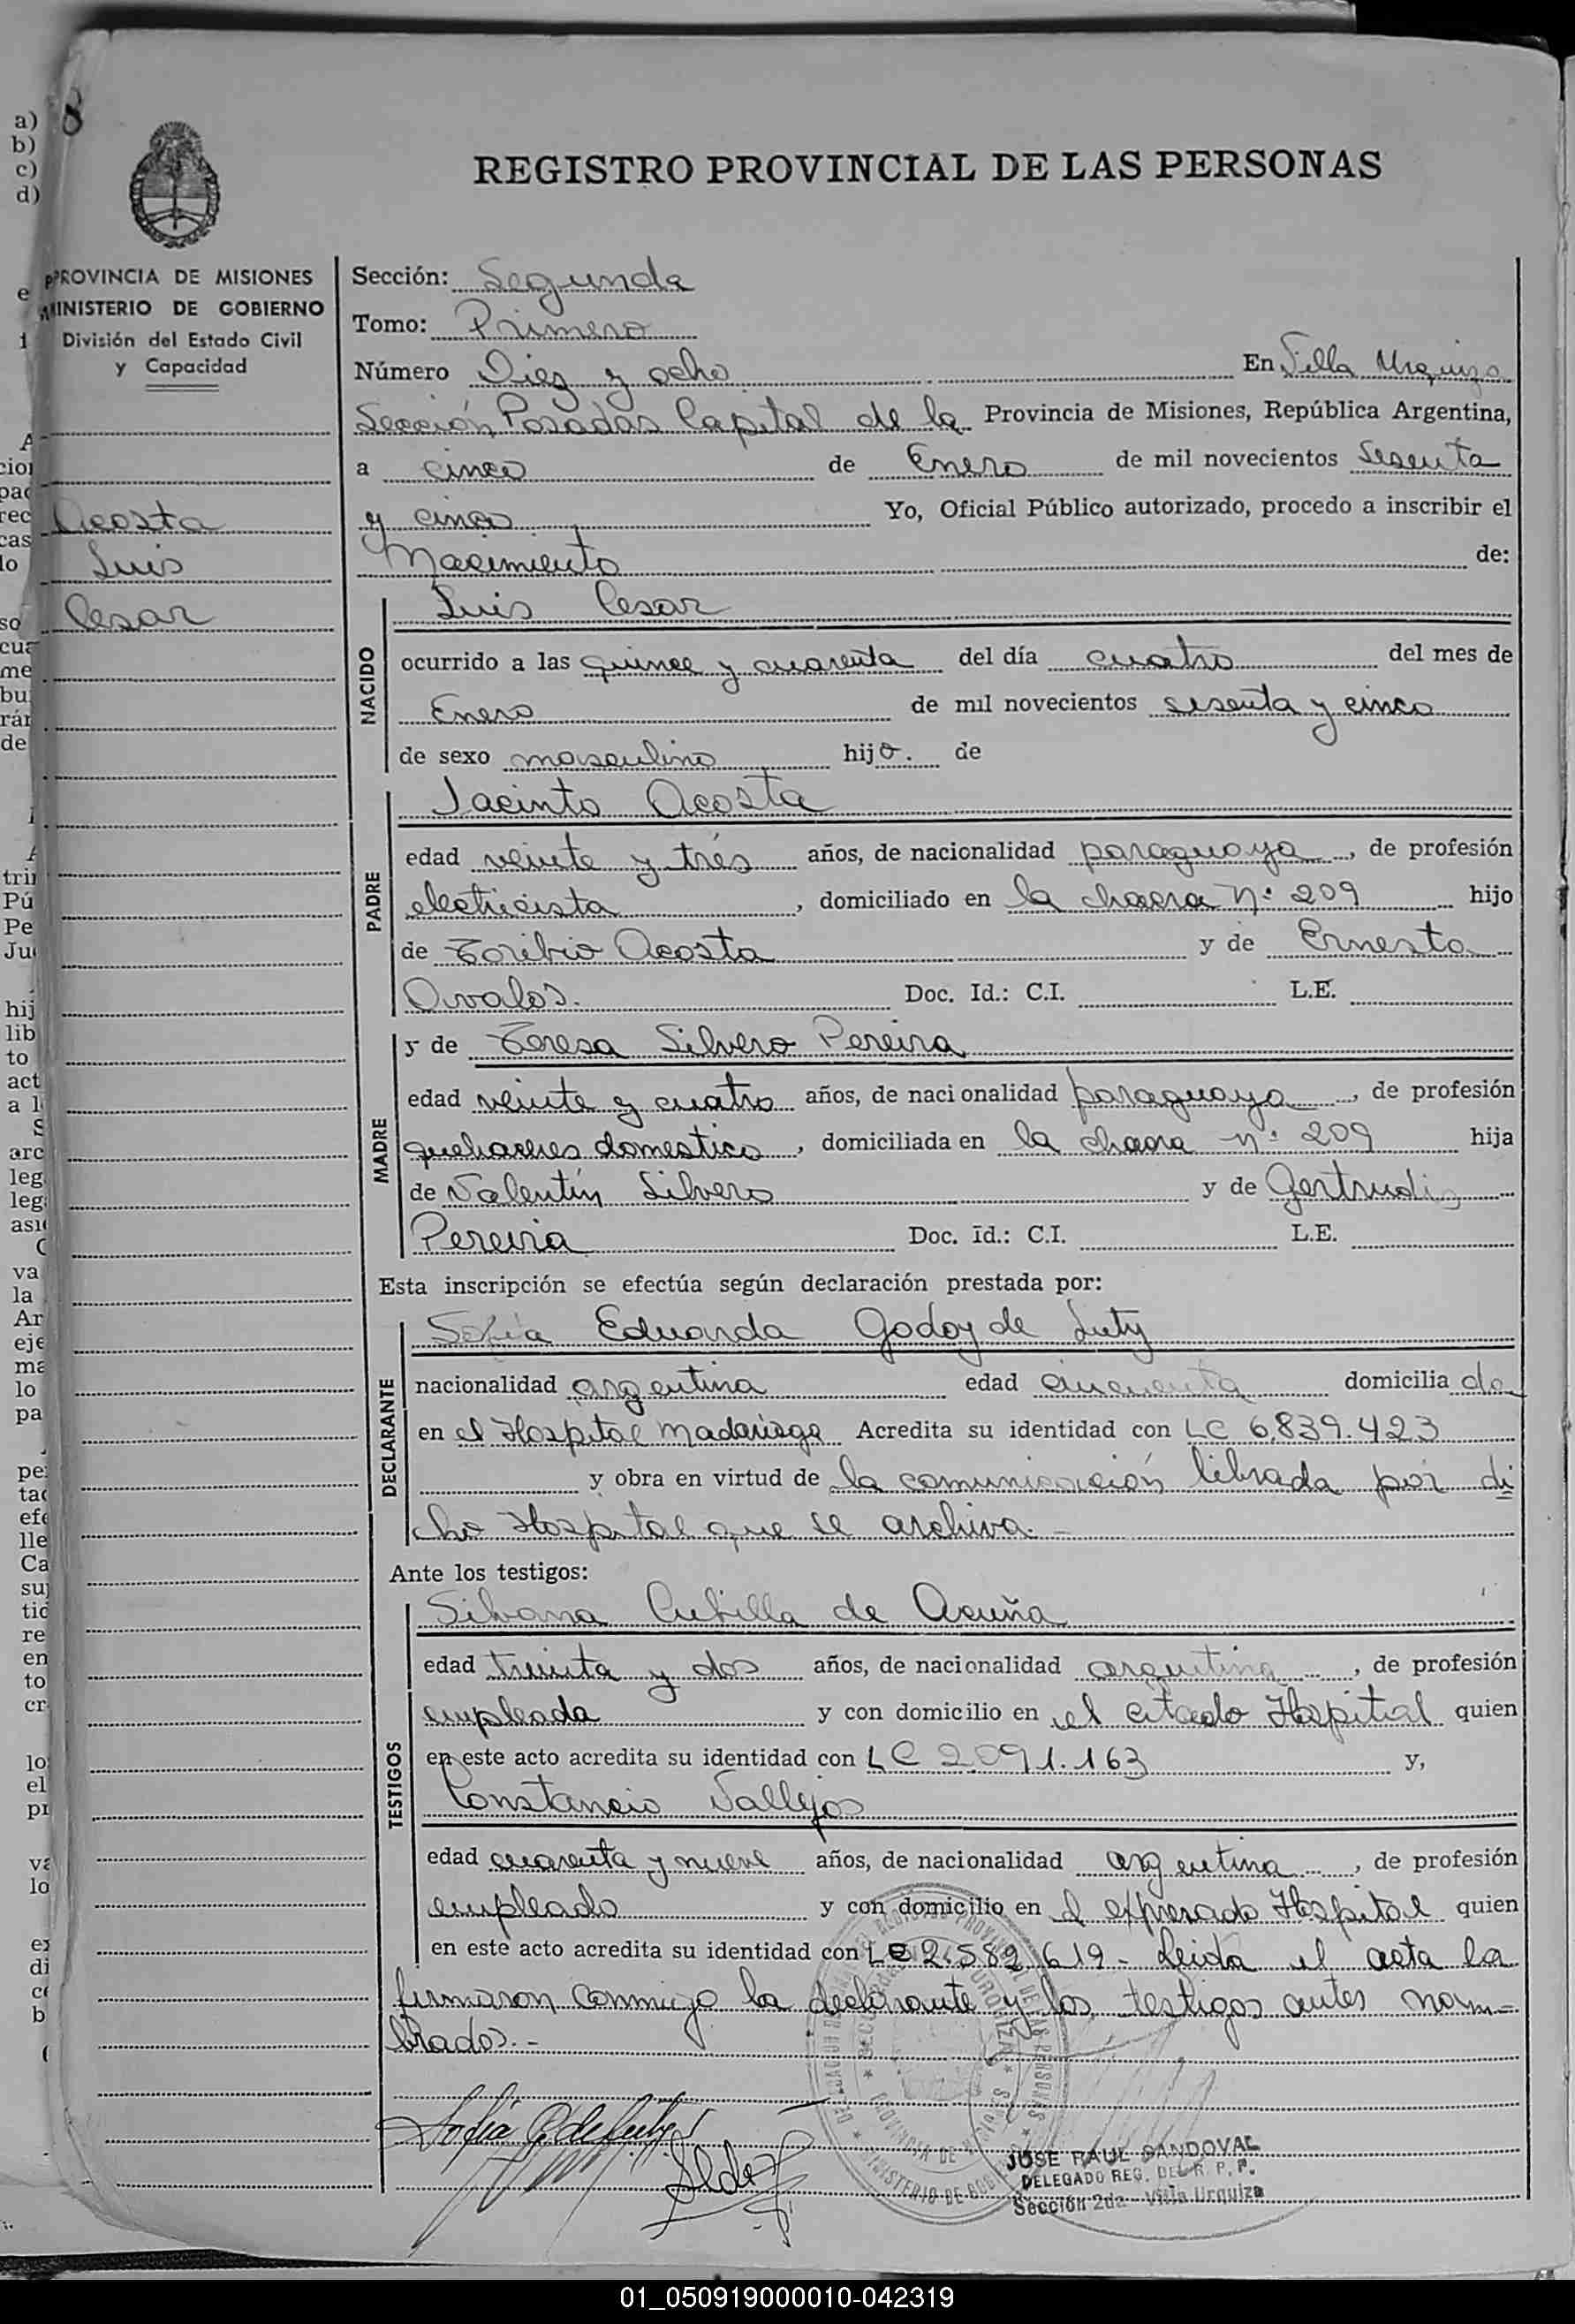 8
REGISTRO PROVINCIAL DE LAS PERSONAS
PROVINCIA DE MISIONES
MINISTERIO DE GOBIERNO
División del Estado Civil
y Capacidad
Acosta
Luis
Cesar
Sección: Segunda
Tomo: Primero
Número Diez y ocho En Villa Urquiza
Sección Posadas Capital de la Provincia de Misiones, República Argentina,
a cinco de Enero de mil novecientos sesenta
y cinco Yo, Oficial Público autorizado, procedo a inscribir el
Nacimiento de:
NACIDO
Luis Cesar
ocurrido a las quince y cuarenta del día cuatro del mes de
Enero de mil novecientos sesenta y cinco
de sexo masculino hijo. de
PADRE
Jacinto Acosta
edad veinte y trés años, de nacionalidad paraguaya, de profesión
electricista, domiciliado en la chacra Nº 209 hijo
de Toribio Acosta y de Ernesta
Avalos. Doc. Id.: C.I. L.E.
MADRE
y de Teresa Silvero Pereira
edad veinte y cuatro años, de nacionalidad paraguaya, de profesión
quehaceres domestico, domiciliada en la chacra nº 209 hija
de Valentín Silvero y de Gertrudis
Pereira Doc. Id.: C.I. L.E.
Esta inscripción se efectúa según declaración prestada por:
DECLARANTE
Sofía Eduarda Godoy de Luty
nacionalidad argentina edad cincuenta domiciliada
en el Hospital Madariaga Acredita su identidad con LC 6.839.423
y obra en virtud de la comunicación librada por di
cho Hospital que se archiva.-
Ante los testigos:
TESTIGOS
Silvana Cubilla de Acuña
edad treinta y dos años, de nacionalidad argentina, de profesión
empleada y con domicilio en el citado Hospital quien
en este acto acredita su identidad con LC 2.091.163 y,
Constancio Vallejos
edad cuarenta y nueve años, de nacionalidad argentina, de profesión
empleado y con domicilio en el expresado Hospital quien
en este acto acredita su identidad con LE 2.582.619- Leida el acta la
firmaron conmigo la declarante y los testigos antes nom-
brados.-
Sofía G de Luty
JOSE RAUL SANDOVAL
DELEGADO REG. DEL R. P. P.
Sección 2da - Villa Urquiza
01_050919000010-042319